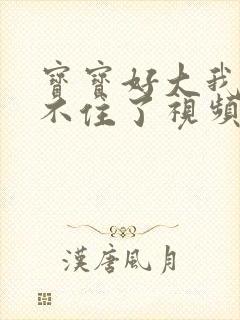 寶寶好大我
不住了視頻
漢唐風月